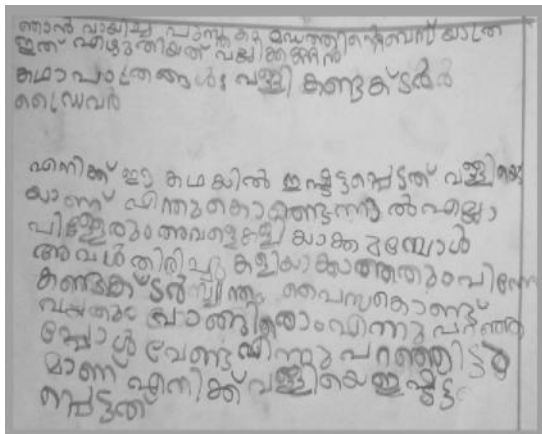 ഞാൻ വായിച്ച പുസ്തകം വള്ളിൻ്റെബസ് യാത്ര
ഇത് എഴുതിയത് വല്ലിക്കണ്ണൻ
കഥാപാത്രങ്ങൾ വള്ളി കണ്ടക്ടർ
ഡ്രൈവർ
എനിക്ക് ഈ കഥയിൽ ഇഷ്ട്ടപ്പെട്ടത് വള്ളിയെ
യാണ് എന്തുകൊണ്ടെന്നുൽ എല്ലാ
പിള്ളേരും അവളെകളിയാക്കുമ്പോൾ
അവൾ തിരിച്ചു കളിയാക്കാത്തതുംപിന്നെ
കണ്ടക്ടർ സ്വന്തം പൈസകൊണ്ട്
വല്ലതും വാങ്ങിതരാംഎന്നു പറഞ്ഞ
പ്പോൾ വേണ്ട എന്നുപറഞ്ഞിട്ടു
മാണ് എനിക്ക് വള്ളിയെഇഷ്ട്ട
പ്പെട്ടത്